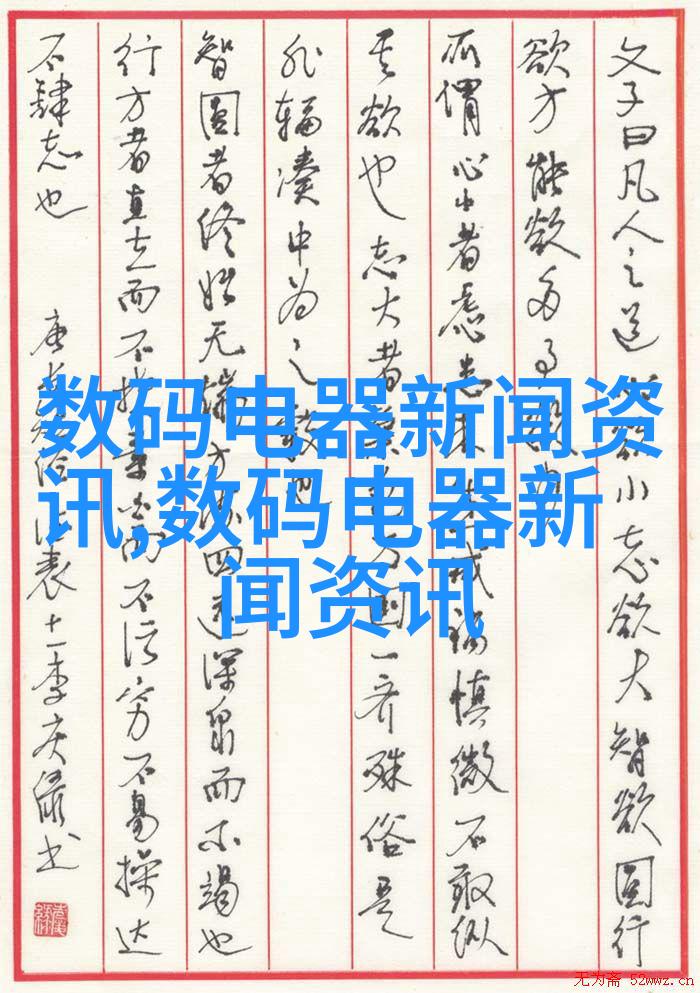 文子曰凡人之道小志欲大智欲圆行
欲方能欲多事
所谓心小者虑患戒祸慎微不敢纵
其欲也志大者一齐殊俗是
非辐凑中为之
智圆者终始无端方四远深泉而不竭也
行方者直立而不素白而不污穷不易操达
不肆志也
数码电器新闻资
讯,数码电器新
闻资讯
无为斋 52wwz.cn